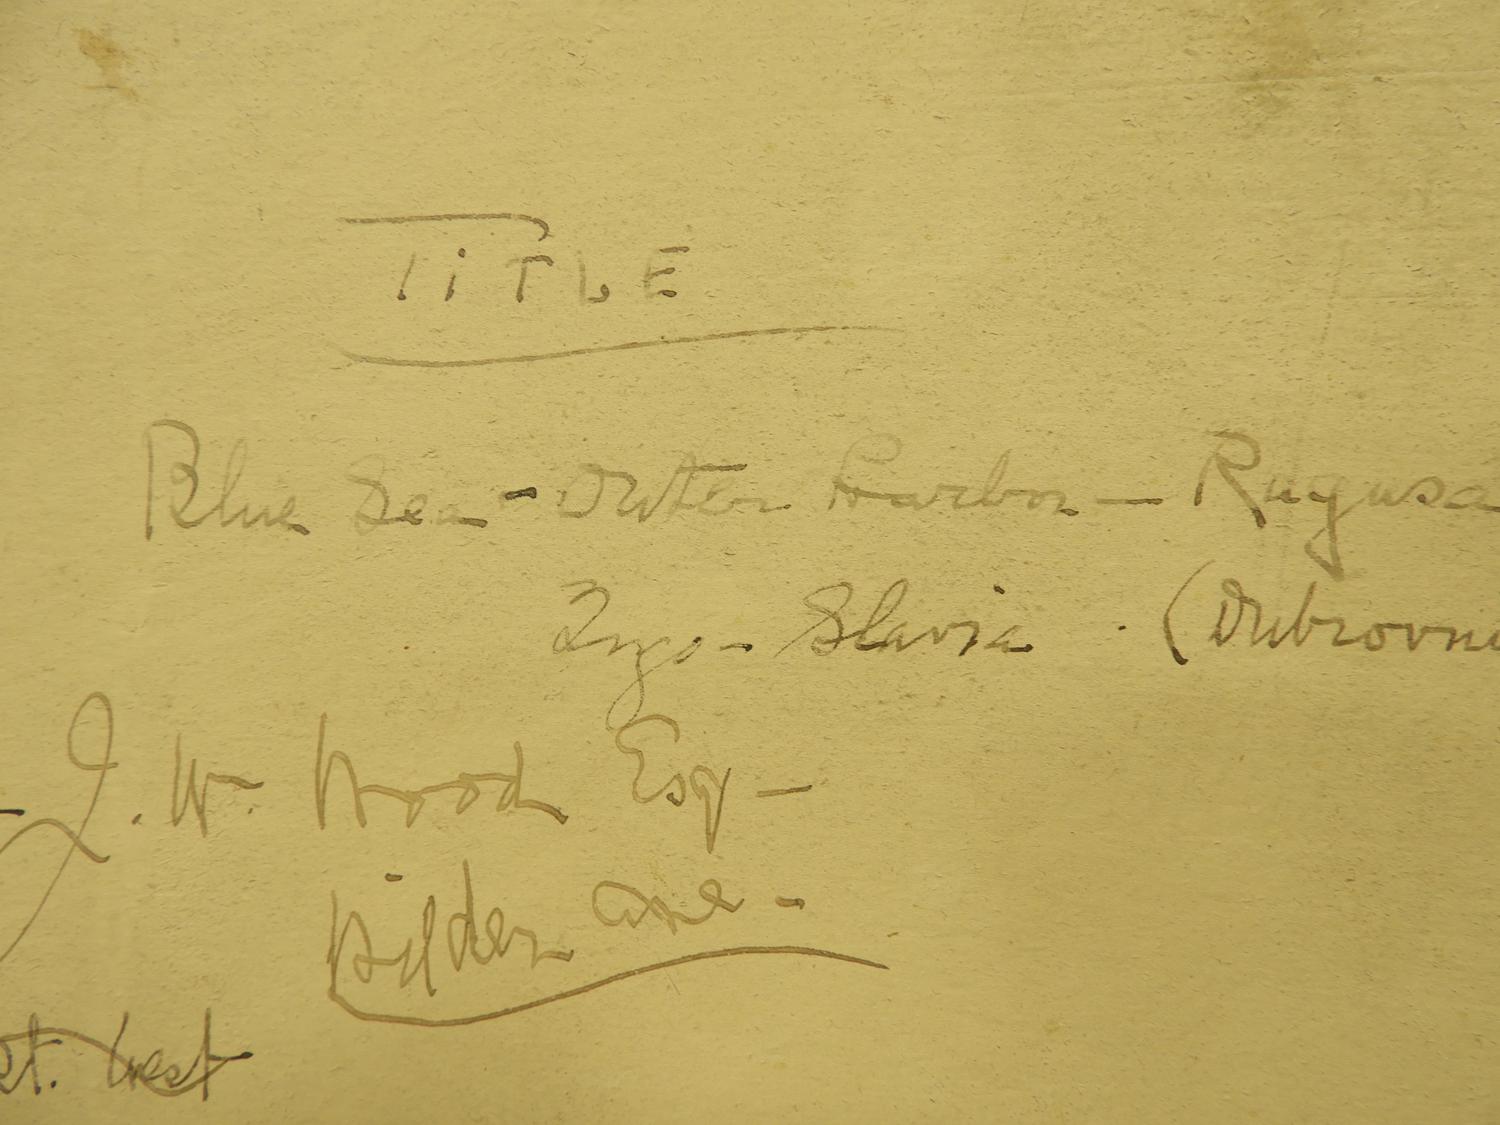 TiTLE
Blue Sea - Outer Harbor — Ragusa
Jugo - Slavia . (Dubrovni
J. W. Wood Esq —
Ave -
st. West